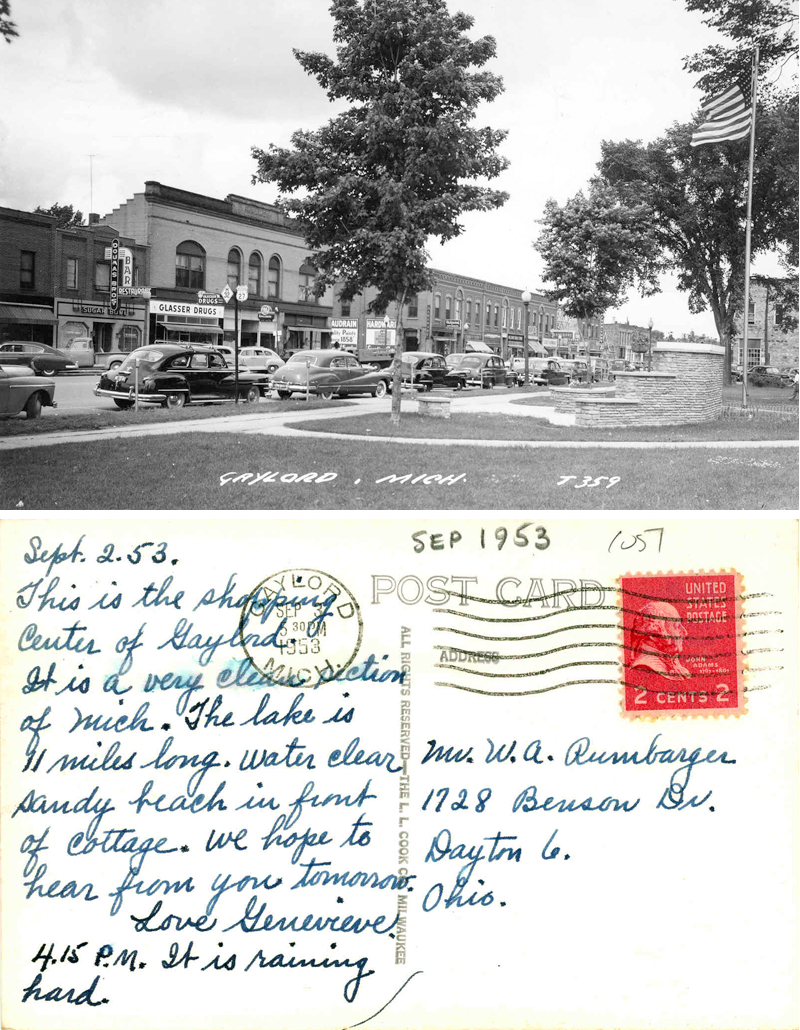 DOUMAS BROS
BAR
RESTAURANT
SUGAR BOWL
GLASSER
DRUGS
GLASSER DRUGS
27
AUDRAIN HARDWARE
Paints
1858
GAYLORD, MICH. T359
SEP 1953
Sept. 2.53.
This is the shopping
center of Gaylord.
It is a very clean section
of Mich. The lake is
11 miles long. Water clear
sandy beach in front
of cottage. We hope to
hear from you tomorrow.
Love Genevieve.
4.15 P.M. It is raining
hard.
GAYLORD
SEP 3
5 30 PM
1953
MICH.
POST CARD
ADDRESS
ALL RIGHTS RESERVED—THE L. L. COOK CO. MILWAUKEE
UNITED
STATES
POSTAGE
JOHN
ADAMS
1797-1801
2 CENTS 2
Mr. W. A. Rumbarger
1728 Benson Dr.
Dayton 6.
Ohio.